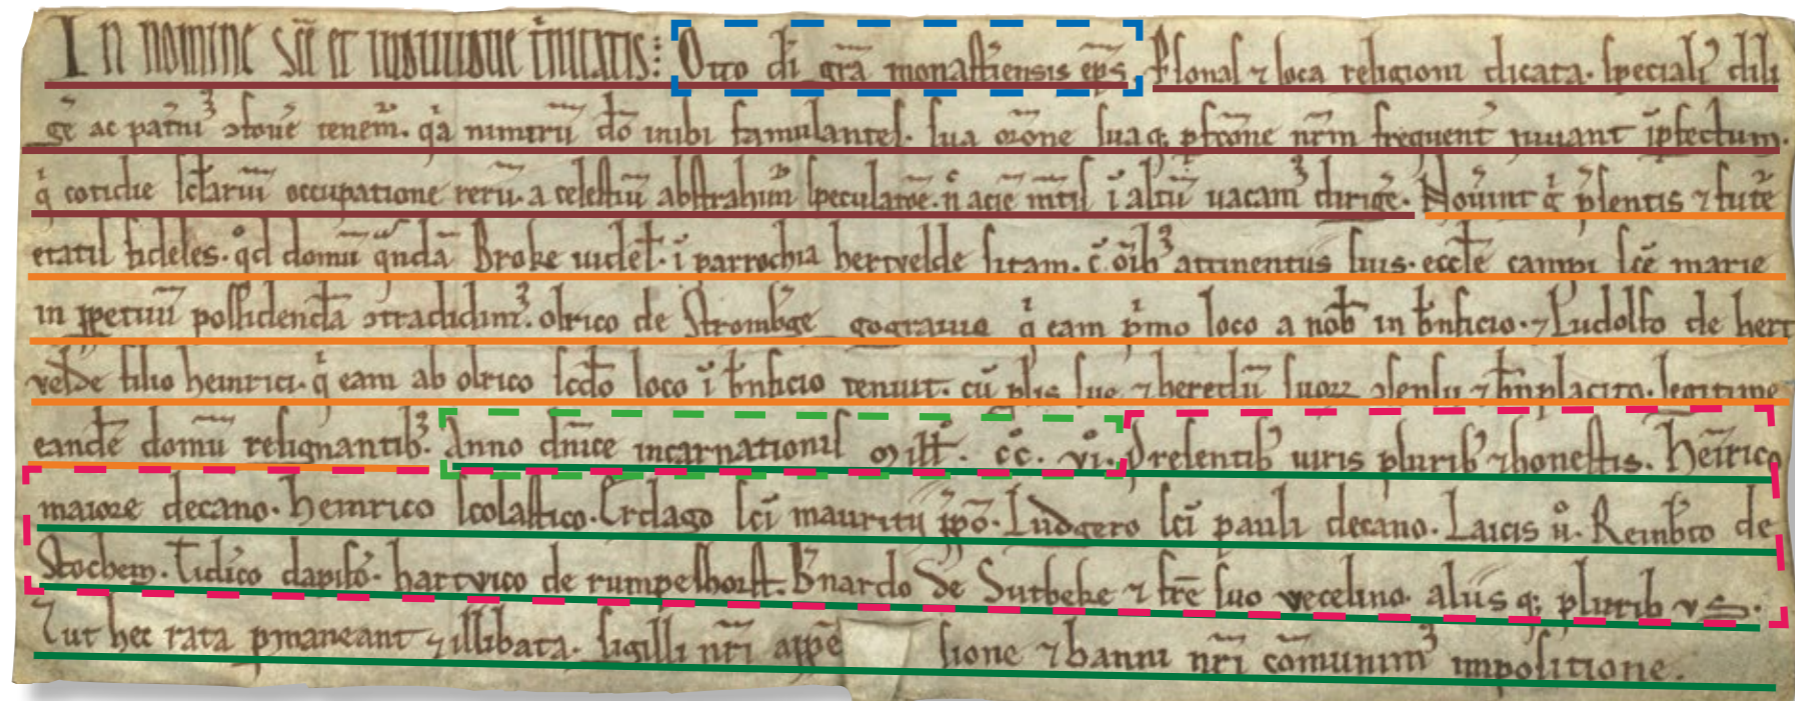 In nomine scē et indiuidue t̾initatis: Otto dī grā monast̄iensis ep̄s. Psonas ⁊ loca religioni dicata. speciali dili
gē ac pat̄ni ꝯfoūe tenem̄. q̾a nimirū dō inibi famulantes. sua or̄one suaq; pfc̄one nr̄m frequent̄ iuuant īpfectum.
q̾ cotidie sc̄lariū occupatione rerū. a celestiū abstrahim̄ speculat̄oe. n̄ acīe m̄tis ī altū uacam᷒ dirig̾e. Nou̾int g̾ p̾sentis ⁊ fut̾e
etatis fideles. qd̾ domū qndā Broke uidel̄. ī parrochia hertvelde sitam. c̄ oīb᷒ attinentiis suis. eccl̄e campi scē marie
in ppetuū possidendā ꝯtradidim᷒. olrico de Stromb̾ge gograuio q̾ eam p̾mo loco a nob̄ in b̄nficio. ⁊ Ludolfo de hert
velde filio heinrici. q̾ eam ab olrico sc̄do loco ī b̄nficio tenuit. cū plis suo ⁊ heredū suoꝝ ꝯsensu ⁊ b̄nplacito. legitime
eandē domū resignantib᷒. Anno dn̄ice incarnationis mill̄. cc̊. vi̊. Presentib᷒ uiris plurib᷒ ⁊ honestis. Hēirico
maiore decano. heinrico scolastico. Erdago scī mauritii p̄po. Ludgero scī pauli decano. Laicis u̾. Reinb̾to de
Stochem. Lidico dapif̾o. hartvico de rumpeshorst. B̾nardo de Sutbeke ⁊ fr̄e suo vecelino. aliis q; plurib vs.
⁊ ut hec rata pmaneant ⁊ illibata. sigilli nr̄i appē sione ⁊ banni nr̄i cōmunim᷒ impositione.